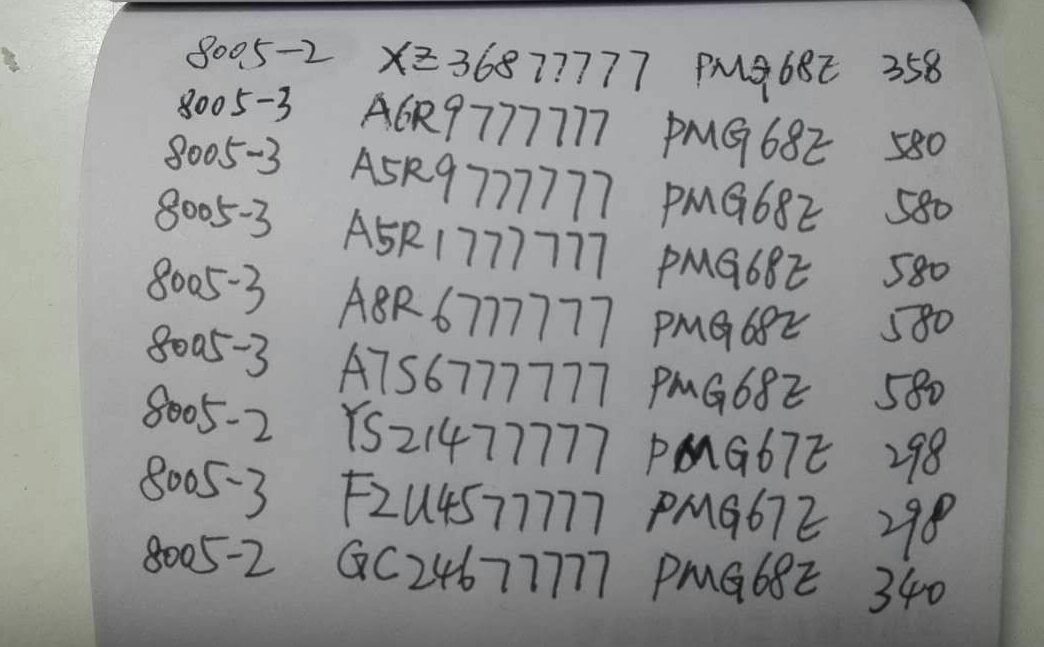 8005-2 XZ36877777 PMG68Z 358
8005-3 A6R9777777 PMG68Z 580
8005-3 A5R9777777 PMG68Z 580
8005-3 A5R1777777 PMG68Z 580
8005-3 A8R6777777 PMG68Z 580
8005-3 A7S6777777 PMG68Z 580
8005-2 YS21477777 PMG67Z 298
8005-3 F2U4577777 PMG67Z 298
8005-2 GC24677777 PMG68Z 340